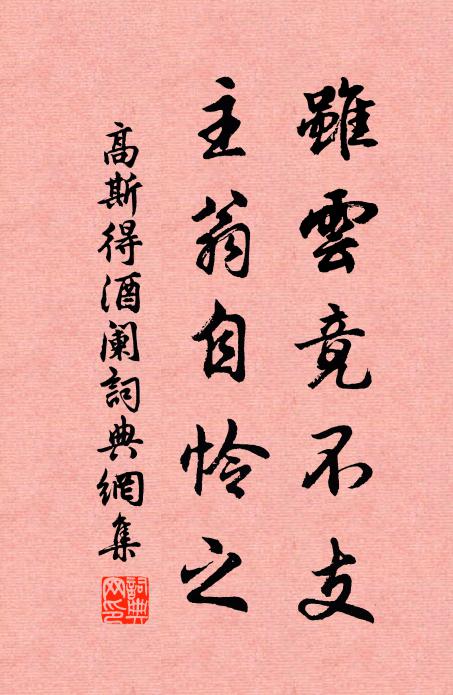 雖雲竟不支
主翁自怜之
高斯得酒阑詞典網集
詞典網印